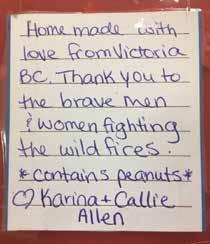 Home made with
love from Victoria
BC. Thank you to
the brave men
& women fighting
the wild fires.
*contains peanuts*
♡ Karina + Callie
Allen